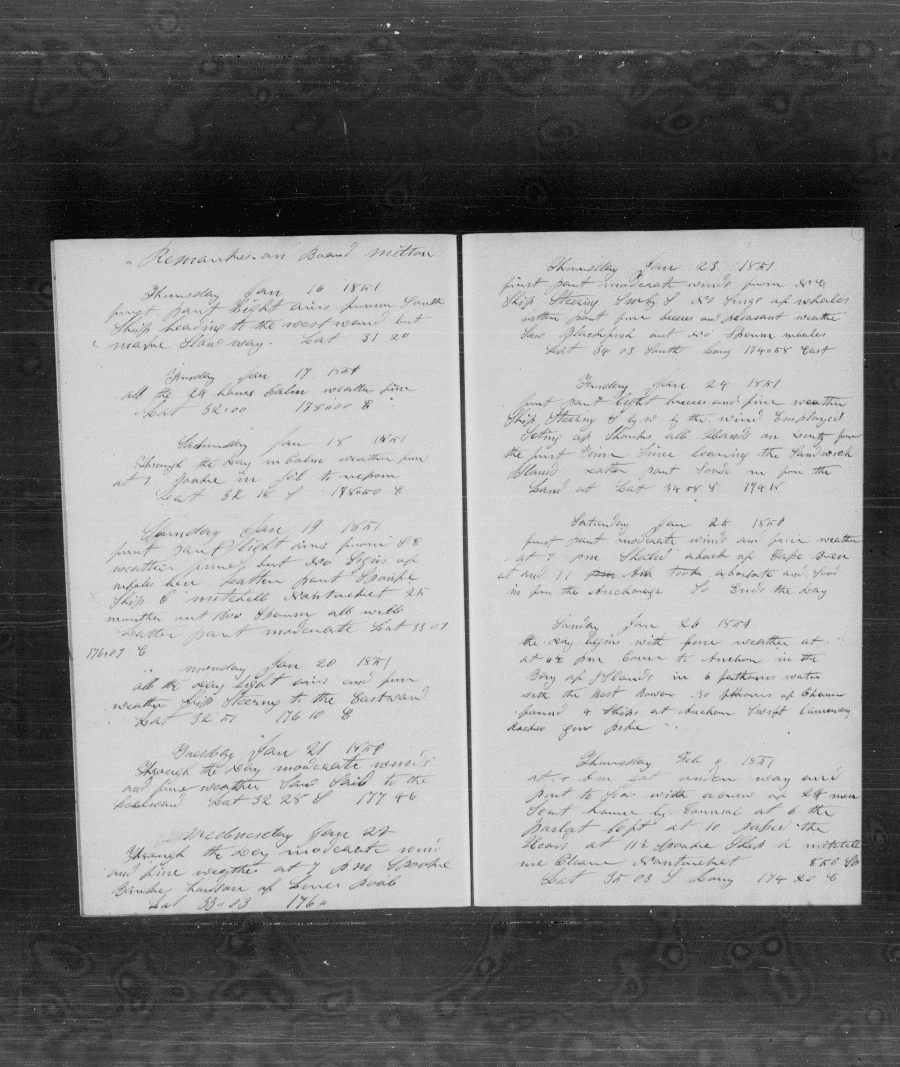 Remarks on Board Milton
Thursday Jan 16 1851
first part light airs from South
Ship heading to the westward but
make slow way. Lat 31 20
Friday Jan 17 1851
all the 24 hours Calm weather fine
Lat 32 00 178 00 E
Saturday Jan 18 1851
Through the Day Calm weather fine
at 1
Lat 32 18 S 178 50 E
Sunday Jan 19 1851
first part light airs from SE
weather fine but No Signs of
whales here Latter part Spoke
Ship E Mitchell Nantucket 25
months out 1300 Sperm all well
Latter part moderate Lat 33 07
176 07 E
monday Jan 20 1851
all the Day light airs and fine
weather Ship Steering to the Eastward
Lat 32 51 176 10 E
Tuesday Jan 21 1851
Through the Day moderate winds
and fine weather Saw Sail to the
Leeward Lat 32 28 S 177 46
Wednesday Jan 22
Through the Day moderate wind
and fine weather at 7 PM Spoke
Hudson of
Lat 33 03 176
Thursday Jan 23 1851
first part moderate winds from
Ship Steering S No Sings of whales
latter part fine breeze and pleasant weather
Saw Blackfish but No Sperm whales
Lat 34 03 South Long 174 58 East
Friday Jan 24 1851
first part light breeze and fine weather
Ship Steering S by the wind Employed
all Hands on Duty for
the first time Since leaving the Sandwich
Islands Latter part Stood in for the
Land at Lat 34 58 S 174 15
Saturday Jan 25 1851
first part moderate wind and fine weather
at 7 PM aback of Cape
at and 11 AM took a and Stood
in for the Anchorage So Ends the Day
Sunday Jan 26 1851
the Day begins with fine weather at
at 6½ PM Came to Anchor in the
Bay of Islands in 6 fathoms water
with the Best Bower 30 fathoms of Chain
found 4 Ships at Anchor Swift
Thursday Feb 1851
at 4 AM Got under way and
put to Sea with a crew of 24 men
Sent home by Council at 6 the
left at 10 the
Heads at 11½ Spoke Ship
me Clean Nantucket 850 Sp
Lat 35 03 S Long 174 20 E